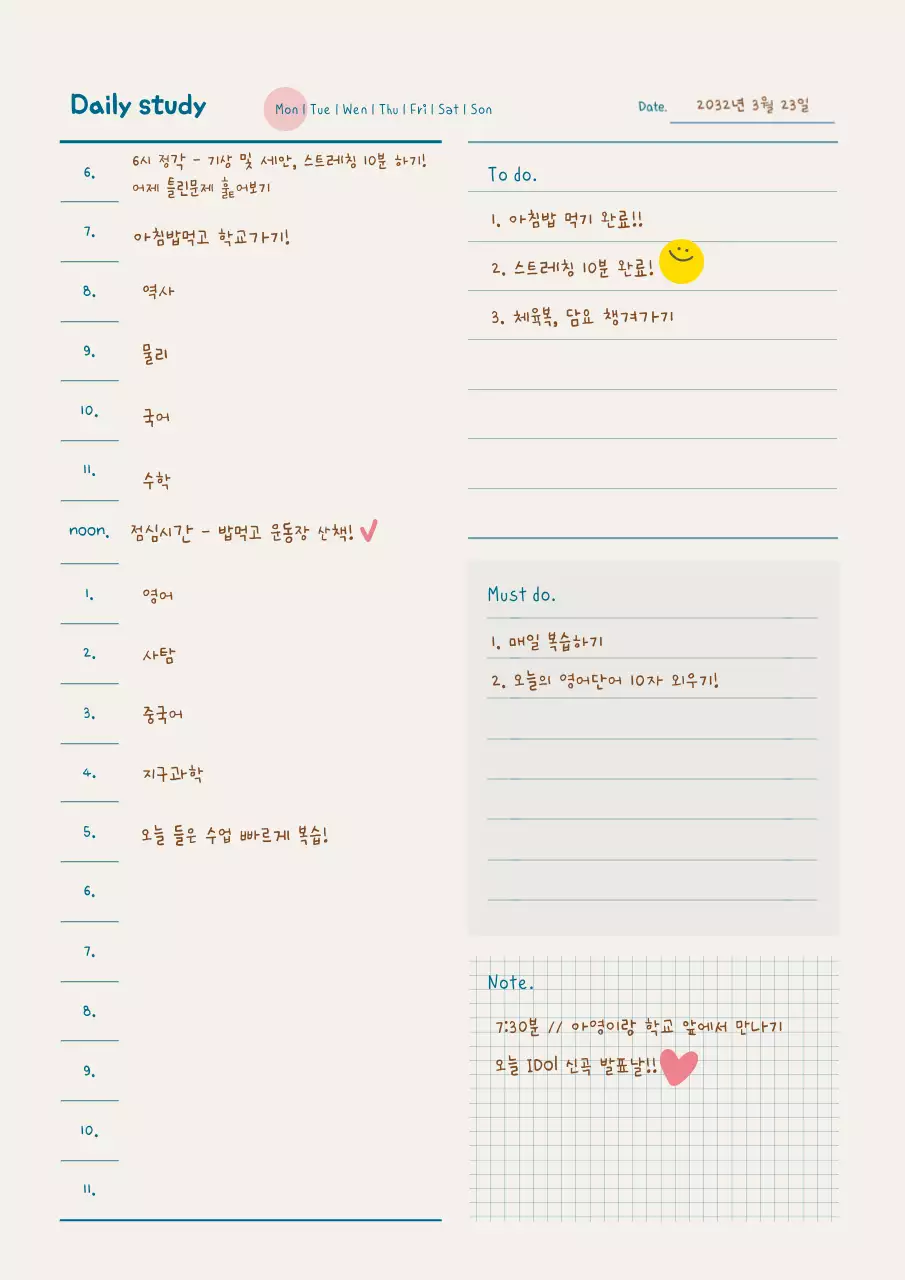 Daily study
Mon | Tue | Wen | Thu | Fri | Sat | Son
Date. 2032년 3월 23일
6. 6시 정각 - 기상 및 세안, 스트레칭 10분 하기!
어제 틀린문제 훑어보기
7. 아침밥먹고 학교가기!
8. 역사
9. 물리
10. 국어
11. 수학
noon. 점심시간 - 밥먹고 운동장 산책!
1. 영어
2. 사탐
3. 중국어
4. 지구과학
5. 오늘 들은 수업 빠르게 복습!
6.
7.
8.
9.
10.
11.
To do.
1. 아침밥 먹기 완료!!
2. 스트레칭 10분 완료!
3. 체육복, 담요 챙겨가기
Must do.
1. 매일 복습하기
2. 오늘의 영어단어 10자 외우기!
Note.
7:30분 // 아영이랑 학교 앞에서 만나기
오늘 IDol 신곡 발표날!!